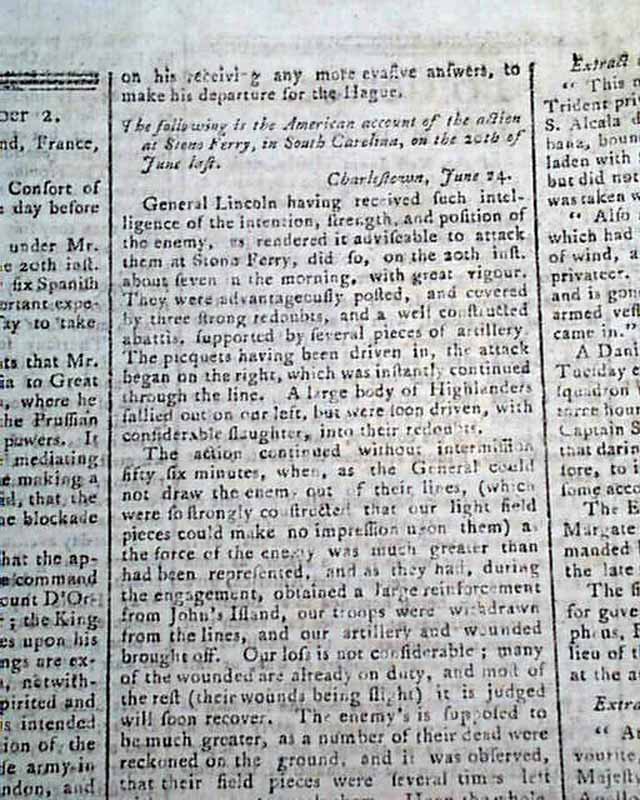 ber 2.
nd, France,
Consort of
e day before
under Mr.
e 20th inst.
six Spanish
ortant expe-
ay to take
ts that Mr.
ia to Great
, where he
the Prussian
powers. It
mediating
e making a
d, that the
e blockade
hat the ap-
e command
ount D'Or-
; the King
es upon his
ngs are ex-
, notwith-
spirited and
s intended
ion of the
se army in
ndon, and
on his receiving any more evasive answers, to
make his departure for the Hague.
The following is the American account of the action
at Stono Ferry, in South Carolina, on the 20th of
June last.
Charlestown, June 24.
General Lincoln having received such intel-
ligence of the intention, strength, and position of
the enemy, as rendered it adviseable to attack
them at Stono Ferry, did so, on the 20th inst.
about seven in the morning, with great vigour.
They were advantageously posted, and covered
by three strong redoubts, and a well constructed
abattis, supported by several pieces of artillery.
The picquets having been driven in, the attack
began on the right, which was instantly continued
through the line. A large body of Highlanders
sallied out on our left, but were soon driven, with
considerable slaughter, into their redoubts.
The action continued without intermission
fifty six minutes, when, as the General could
not draw the enemy out of their lines, (which
were so strongly constructed that our light field
pieces could make no impression upon them) as
the force of the enemy was much greater than
had been represented, and as they had, during
the engagement, obtained a large reinforcement
from John's Island, our troops were withdrawn
from the lines, and our artillery and wounded
brought off. Our loss is not considerable; many
of the wounded are already on duty, and most of
the rest (their wounds being slight) it is judged
will soon recover. The enemy's is supposed to
be much greater, as a number of their dead were
reckoned on the ground, and it was observed,
that their field pieces were several times left
Extract
" This m
Trident pri
S. Alcala d
bana, boun
laden with
but did not
was taken w
" Also
which had
of wind, a
privateer.
and is gon
armed vess
came in."
A Dani
Tuesday e
squadron
three hours
Captain S
that darin
fore, to
some acco
The E
Margate
manded
the late
The si
for gove
pheus, P
lieu of th
at the a
Extra
" A
vourite,
Majesty